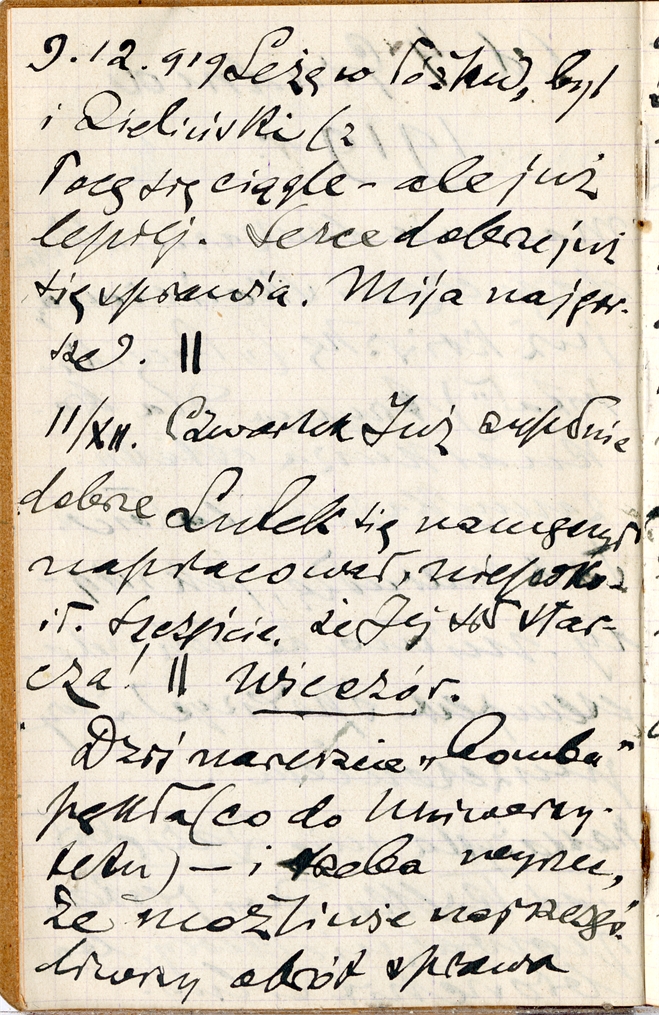 9.12.919 Leżę w łóżku, był
i Zieliński (z
Pocę się ciągle – ale już
lepiej. Serce dobrze już
się sprawia. Mija najgor-
sze). ||
11/XII. Czwartek Już zupełnie
dobrze Lulek się namęczył
napracował, niepoko-
ił. Szczęście, że Jej sił star-
cza! || Wieczór.
Dziś nareszcie „bomba"
pękła (co do Uniwersy-
tetu) – i trzeba wyznać,
że możliwie najszczęś-
liwszy obrót sprawa